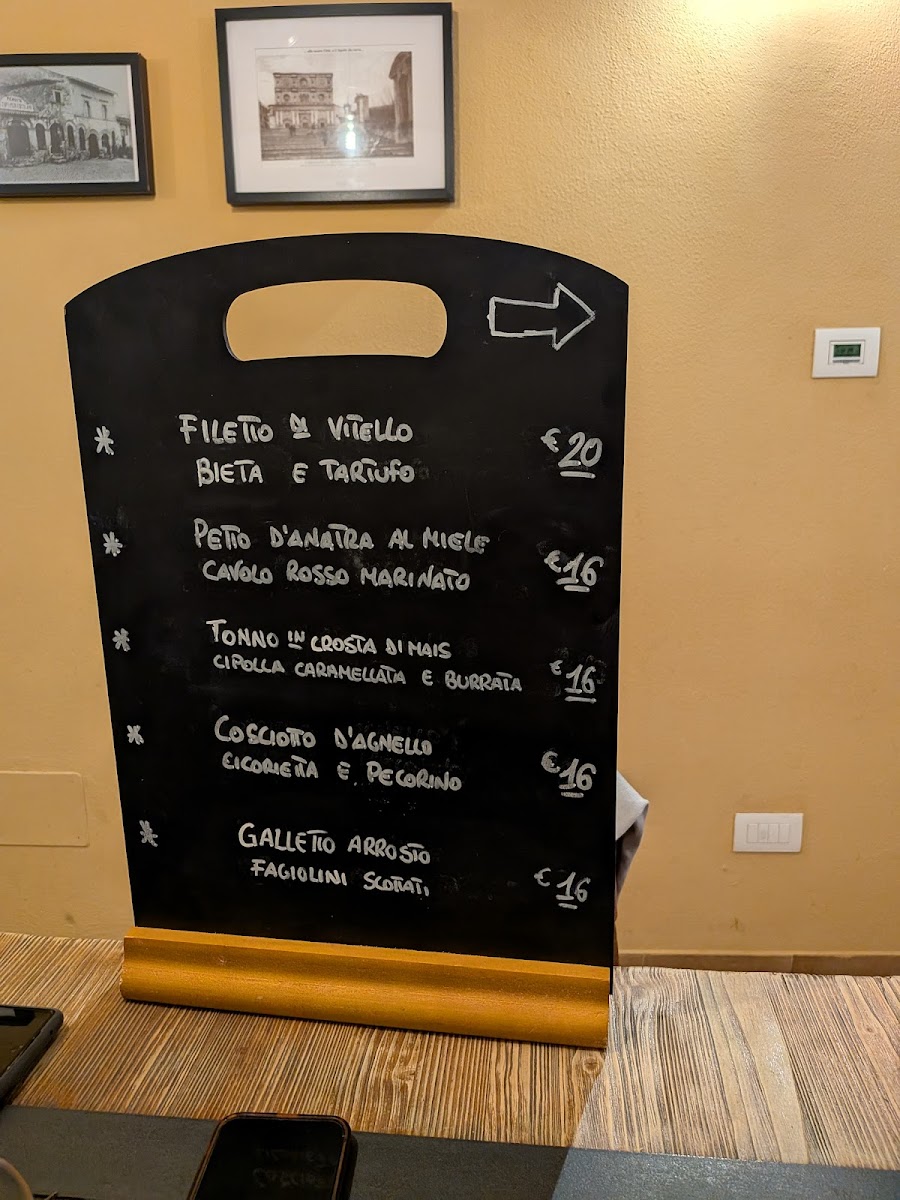 * FILETTO DI VITELLO
BIETA E TARTUFO € 20
* PETTO D'ANATRA AL MIELE
CAVOLO ROSSO MARINATO € 16
* TONNO IN CROSTA DI MAIS
CIPOLLA CARAMELLATA E BURRATA € 16
* COSCIOTTO D'AGNELLO
CICORIETTA E PECORINO € 16
* GALLETTO ARROSTO
FAGIOLINI SCOTTATI € 16